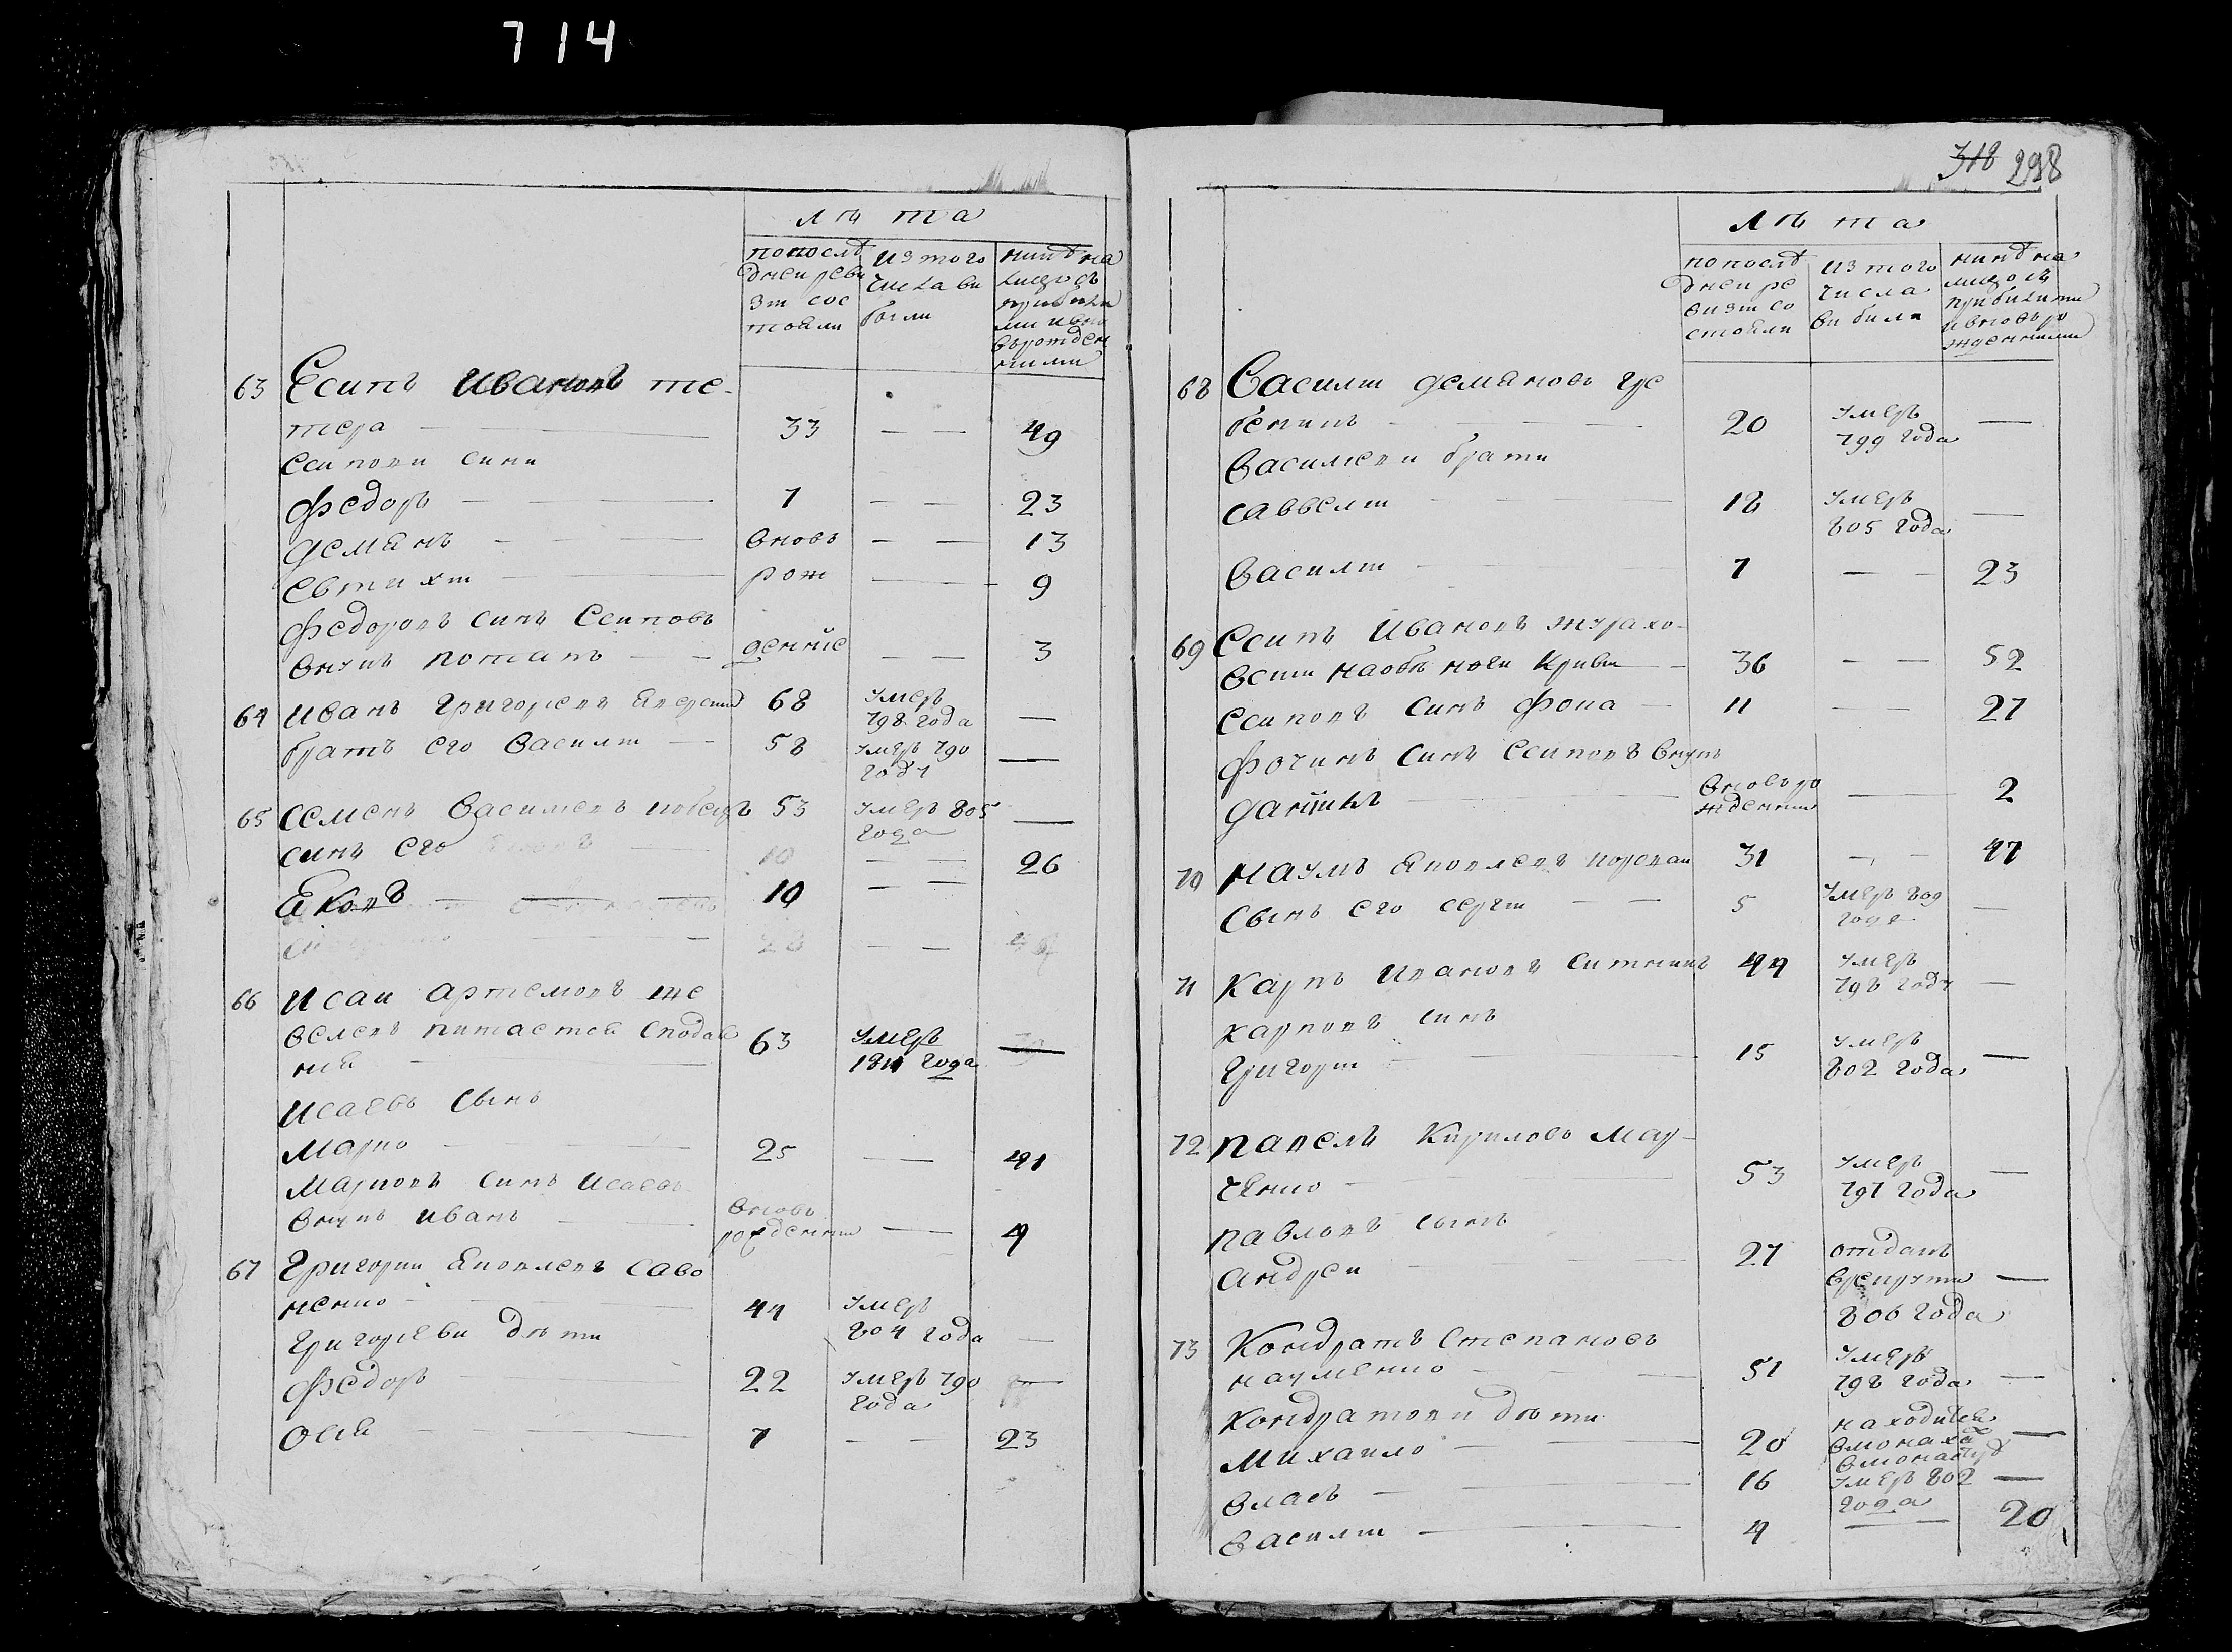 714
лѣта
попослѣ
дней реви
зіи сос
тояли
изтого
числа вы
были
нинѣ на
лицось
прибили
ми ивно
въ рожден
ними
63 Есипъ Ивановъ те-
тера — 33 — — 49
Есиповы сини
Федоръ — 7 — — 23
Демянъ — вновь — — 13
Евтихiй — рож — — 9
Федоровъ синъ Есиповъ
внукъ Потапъ — денніе — — 3
64 Иванъ Григориевъ 68 умеръ
798 года —
братъ его Василій — 58 умеръ 790
году —
65 Семенъ Василиевъ 53 умеръ 805
года —
синъ его — 10 — — 26
Яковъ — 10 — —
28 — —
66 Исай Артемовъ ше
велевъ сподая
нія — 63 умеръ
1811 года —
Исаевъ сынъ
Марко — 25 — — 41
Марковъ синъ Исаевъ
внукъ Иванъ — вновь
рожденній — 4
67 Григорий Яковлевъ Саво
ненко — 44 умеръ
804 года —
Григориеви дѣти
Федоръ — 22 умеръ 790
года —
Осія — 7 — — 23
318 298
лѣта
попослѣ
дней ре
визіи со
стояли
изтого
числа
вибили
нинѣ на
лицось
прибилими
ивновь ро
жденними
68 Василій Демяновъ Гре
беникъ — 20 умеръ
799 года —
Василиеви брати
Савелій — 18 умеръ
805 года —
Василій — 7 — — 23
69 Есипъ Ивановъ Журахо-
вскій наобѣ ноги криви — 36 — — 52
Есиповъ синъ Фока — 11 — — 27
Фочинъ синъ Есиповъ внукъ
Даніилъ — вновь ро
жденній — 2
70 Наумъ Яковлевъ 31 — — 47
Сынъ его Сергій — 5 умеръ 809
года —
71 Карпъ Ивановъ Ситникъ 44 умеръ
798 году —
Карповъ синъ
Григорій — 15 умеръ
802 года —
72 Павелъ Кириловъ Мар-
ченко — 53 умеръ
797 года —
Павловъ сынъ
Андрей — 27 отданъ
врекрути —
806 года
73 Кондратъ Степановъ
Науменко — 51 умеръ
798 года —
Кондратови дѣти
Михайло — 20 находится
вмонахѣ
вмонастирѣ —
Власъ — 16 умеръ 802
года —
Василій — 4 — 20